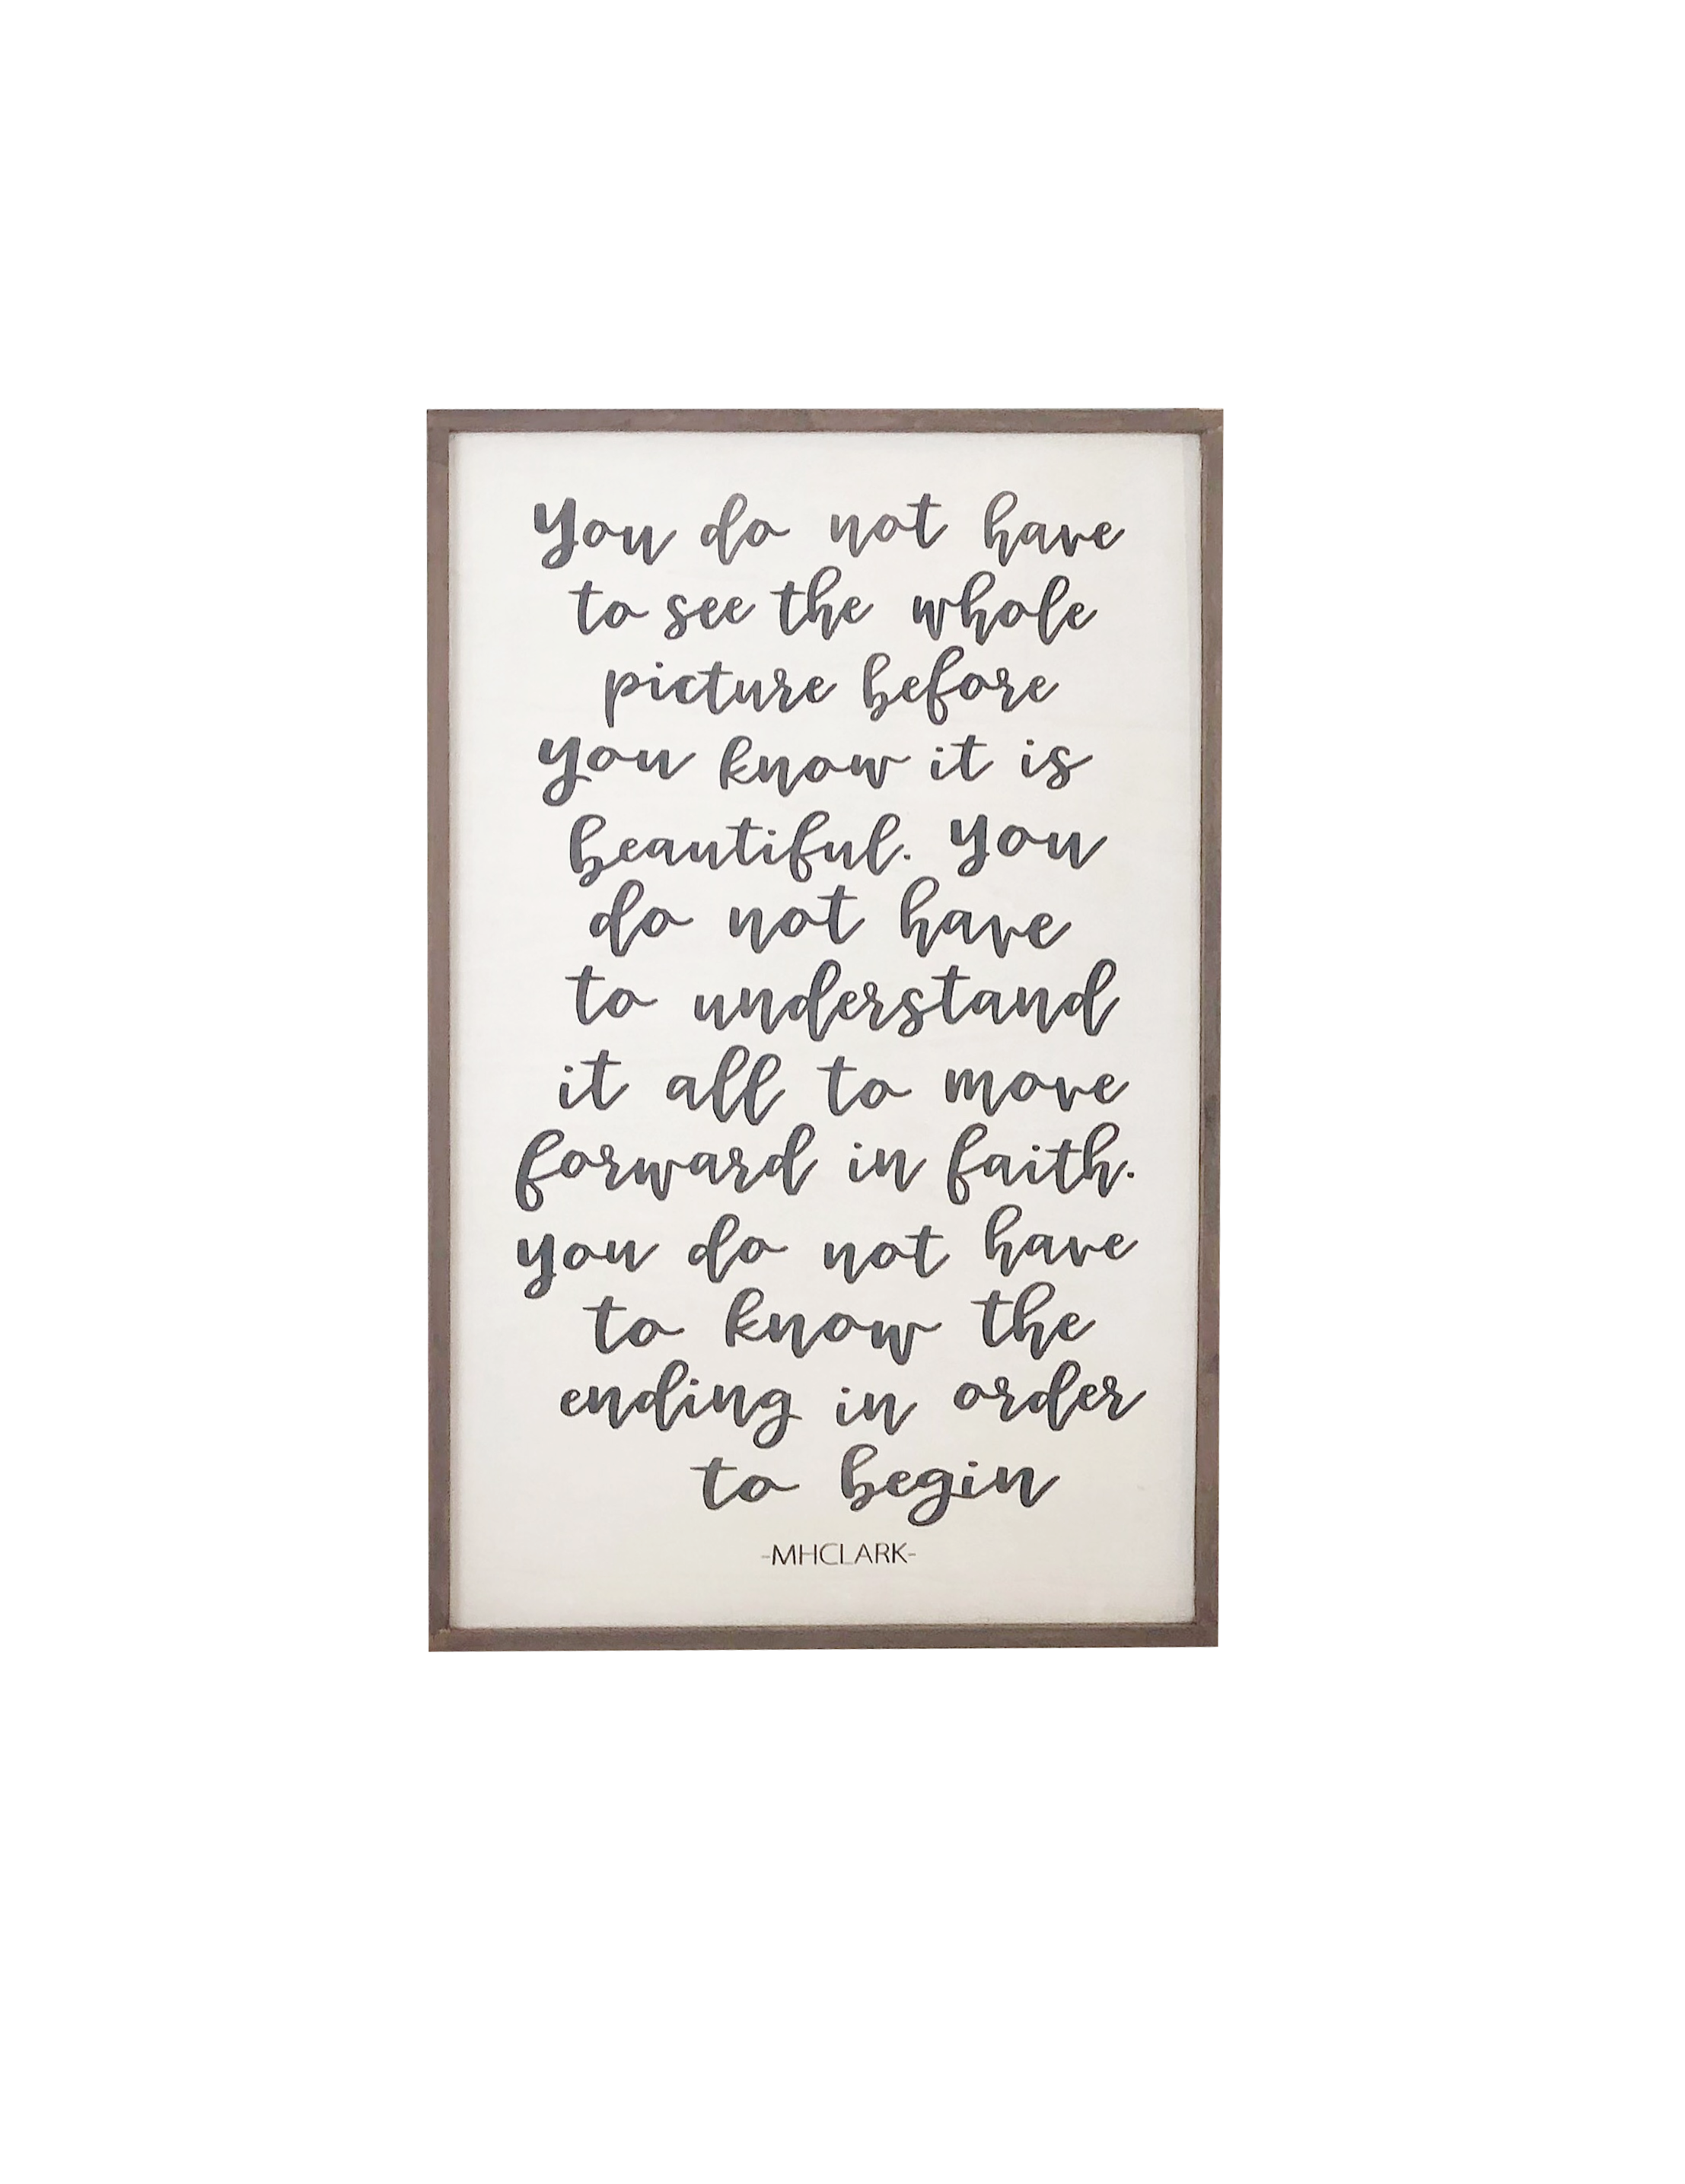 You do not have
to see the whole
picture before
you know it is
beautiful. You
do not have
to understand
it all to move
forward in faith.
you do not have
to know the
ending in order
to begin
-MHCLARK-